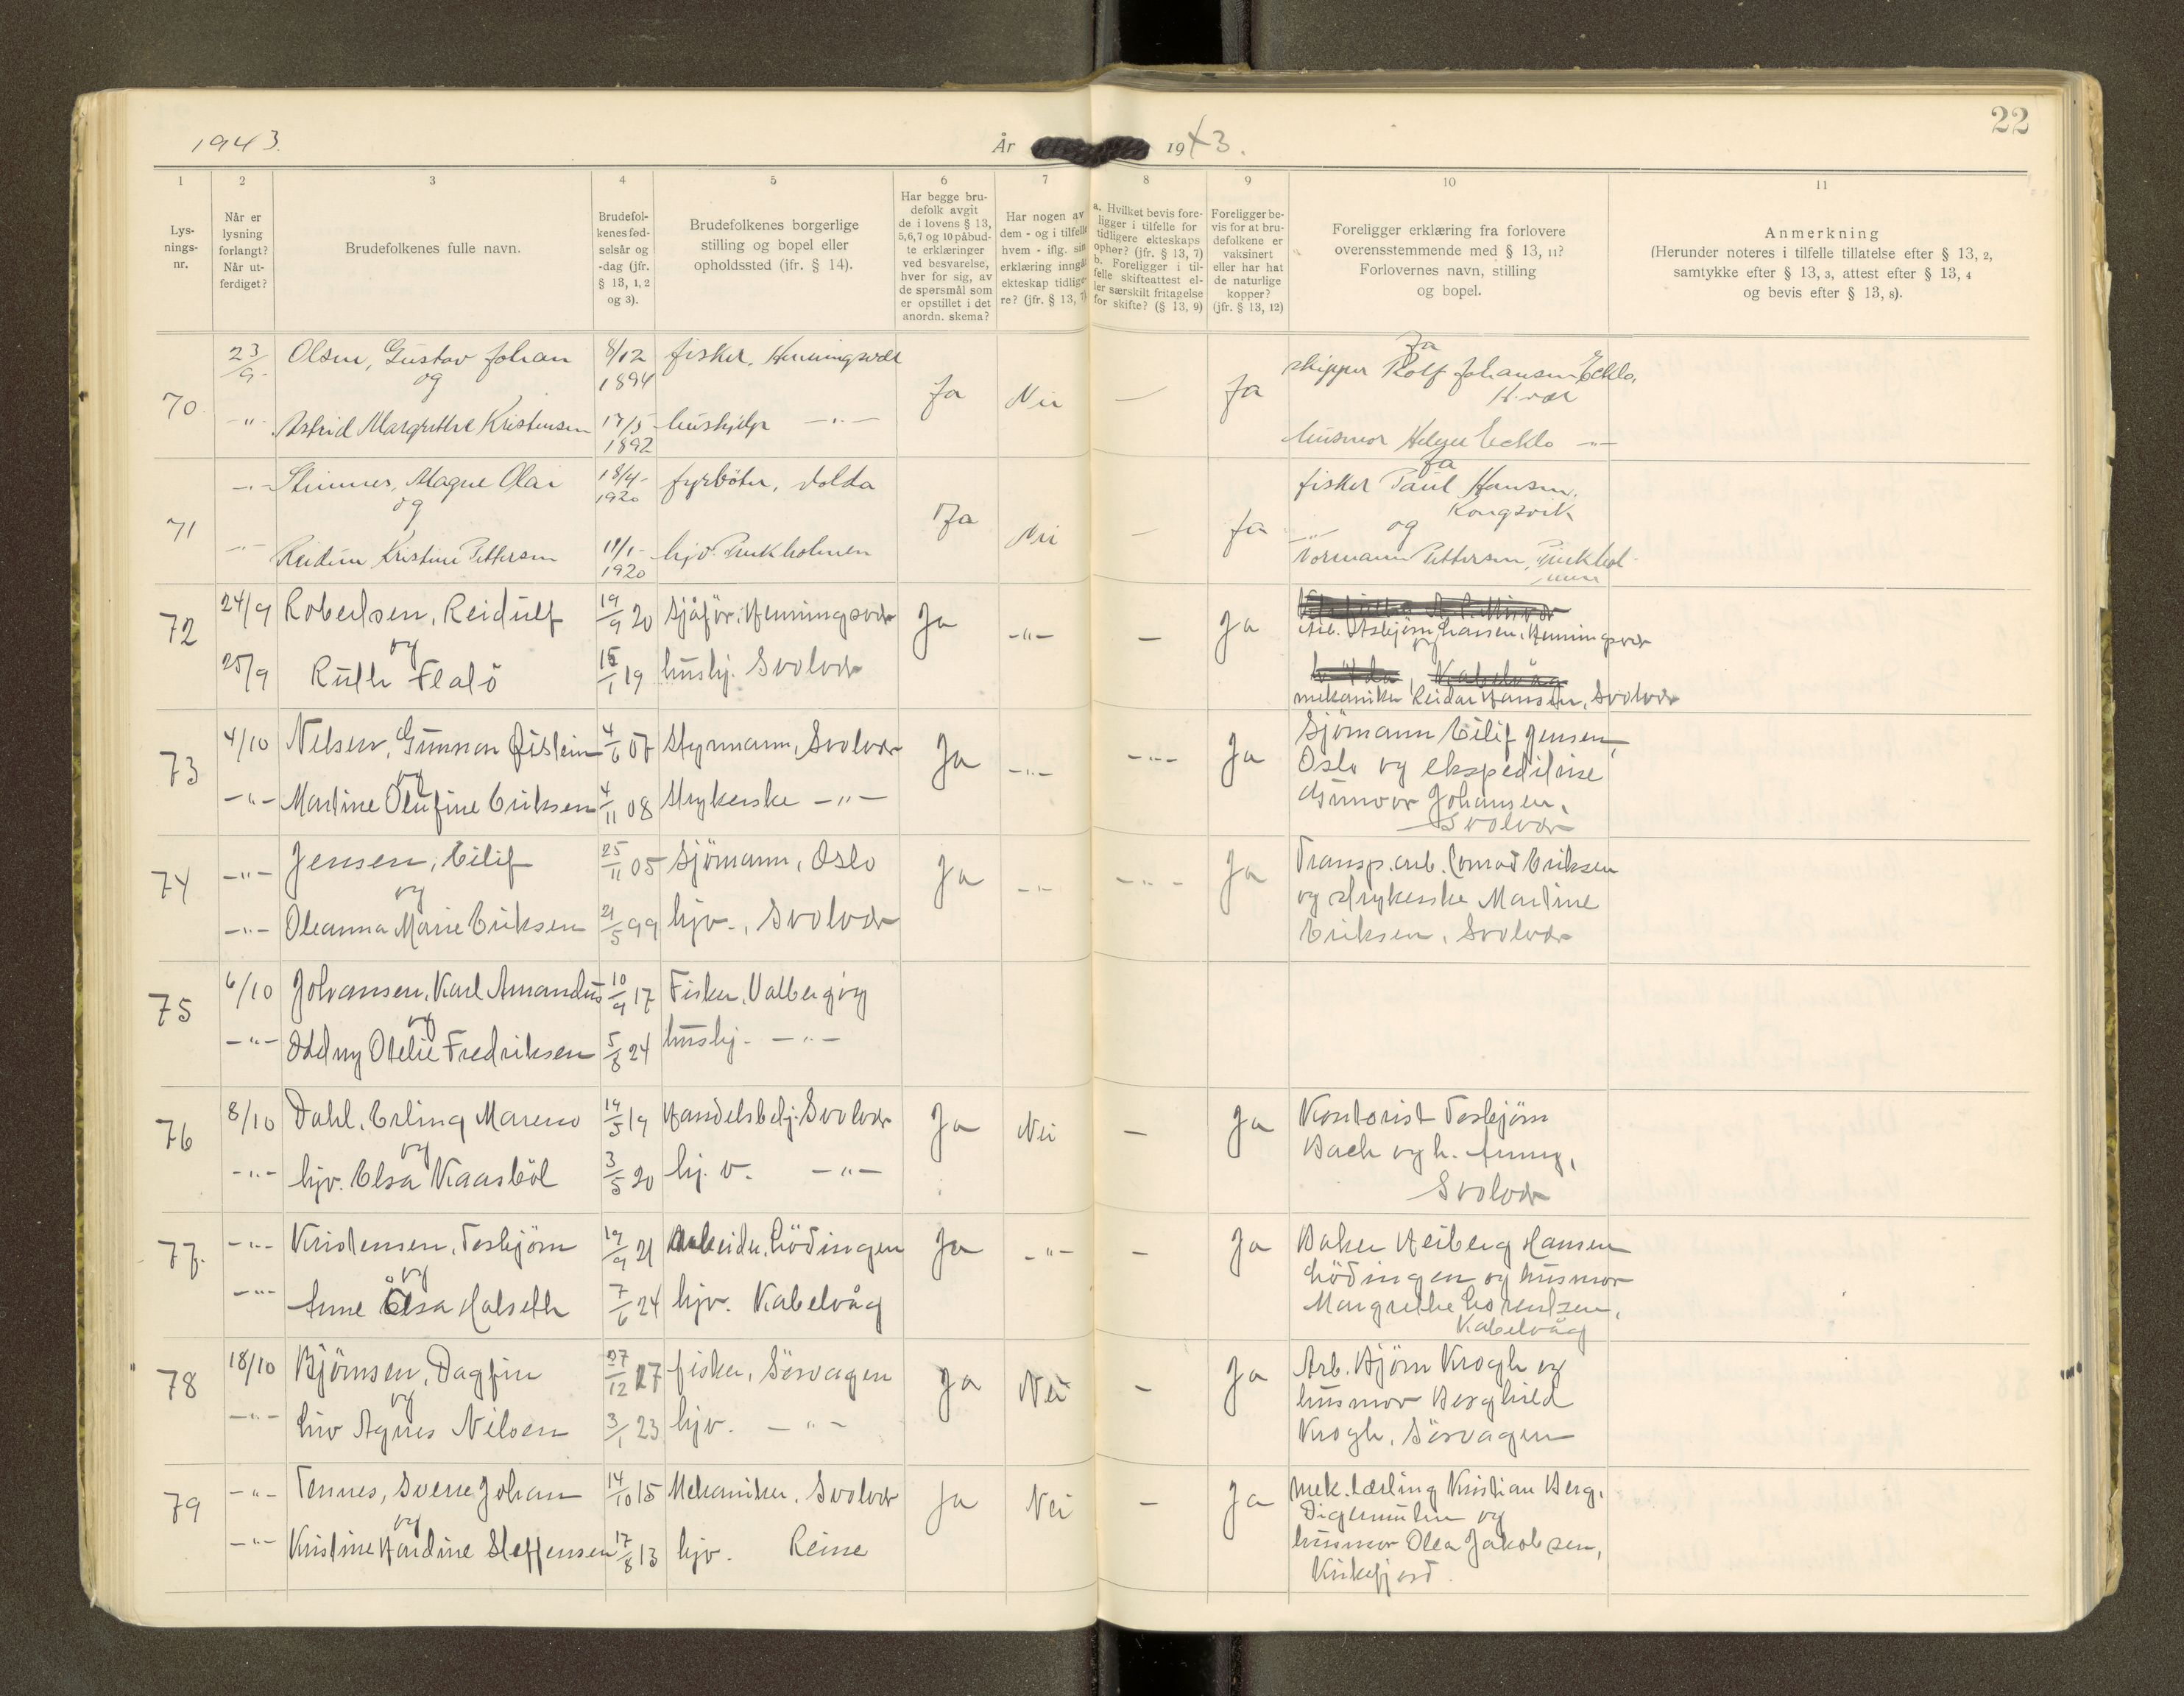 22
1943.
År 1943.
1 2 3 4 5 6 7 8 9 10 11
Lys-
nings-
nr.
Når er
lysning
forlangt?
Når ut-
ferdiget?
Brudefolkenes fulle navn.
Brudefol-
kenes fød-
selsår og
-dag (jfr.
§ 13, 1, 2
og 3).
Brudefolkenes borgerlige
stilling og bopel eller
opholdssted (jfr. § 14).
Har begge bru-
defolk avgit
de i lovens § 13,
5,6,7 og 10 påbud-
te erklæringer
ved besvarelse,
hver for sig, av
de spørsmål som
er opstillet i det
anordn. skema?
Har nogen av
dem - og i tilfelle
hvem - iflg. sin
erklæring inngå
ekteskap tidlige-
re? (jfr. § 13, 7)
a. Hvilket bevis fore-
ligger i tilfelle for
tidligere ekteskaps
ophør? (jfr. § 13, 7)
b. Foreligger i til-
felle skifteattest el-
ler særskilt fritagelse
for skifte? (§ 13, 9)
Foreligger be-
vis for at bru-
defolkene er
vaksinert
eller har hat
de naturlige
kopper?
(jfr. § 13, 12)
Foreligger erklæring fra forlovere
overensstemmende med § 13, 11?
Forlovernes navn, stilling
og bopel.
Anmerkning
(Herunder noteres i tilfelle tillatelse efter § 13, 2,
samtykke efter § 13, 3, attest efter § 13, 4
og bevis efter § 13, 8).
70 23/9 Olsen, Gustav Johan 8/12 1894 fisker, Henningsvær Ja Nei — Ja
og
-"- Astrid Margrethe Kristensen 17/5 1892 hushjelp -"-
Ja
skipper Rolf Johansen
H.vær
husmor
71 -"- Magne Olai 18/4 1920 fyrböter, Ja Nei — Ja
og
-"- Reidun Kristine Pettersen 11/1 1920 hjv.
Ja
fisker Paul Hansen,
Kongsvik
og
Normann Pettersen,
72 24/9 Robertsen, Reidulf 19/9 20 sjåför, Henningsvær Ja -"- — Ja
og
25/9 Ruth Flalö 15/1 19 hushj. Svolvær
Arb. Asbjörn Hansen, Henningsvær
og
Kabelvåg
mekaniker Reidar Hansen, Svolvær
73 4/10 Nelsen, Gunnar Öistein 4/6 07 Styrmann, Svolvær Ja -"- -"- Ja
og
-"- Martine Olufine Eriksen 4/11 08 Strykerske -"-
Sjömann Eilif Jensen,
Oslo og ekspeditrise
Gunvor Johansen,
Svolvær
74 -"- Jensen, Eilif 25/11 05 Sjömann, Oslo Ja -"- -"- Ja
og
-"- Oleanna Marie Eriksen 21/5 99 hjv., Svolvær
Transp.arb. Conrad Eriksen
og strykerske Martine
Eriksen, Svolvær
75 6/10 Johansen, Karl Amandus 10/9 17 Fisker, Valbergög
og
-"- Oddny Otelie Fredriksen 5/8 24 hushj. -"-
76 8/10 Dahl, Erling Mareno 14/5 19 Handelsbetj. Svolvær Ja Nei — Ja
og
-"- hjv. Elsa Kaasböl 3/5 20 hj.v. -"-
Kontorist Torbjörn
Bach og h. Anny,
Svolvær
77. -"- Kristensen, Torbjörn 19/9 21 Arbeider, Lödingen Ja -"- — Ja
og
-"- Anne Elsa Halseth 7/6 24 hjv. Kabelvåg
Baker Heiberg Hansen
Lödingen og husmor
Margrethe Lorentzen,
Kabelvåg
78 18/10 Björnsen, Dagfin 27/12 17 fisker, Sörvagen Ja Nei — Ja
og
-"- hjv Agnes Nilsen 3/1 23 hjv. -"-
Arb. Björn Krogh og
husmor Berghild
Krogh, Sörvagen
79 -"- Tennes, Sverre Johan 14/10 15 Mekaniker, Svolvær Ja Nei — Ja
og
-"- Kristine Hardine Steffensen 17/8 13 hjv. Reine
Mek. lærling Kristian Berg,
Digermulen og
husmor Olea Jakobsen,
Kirkefjord.